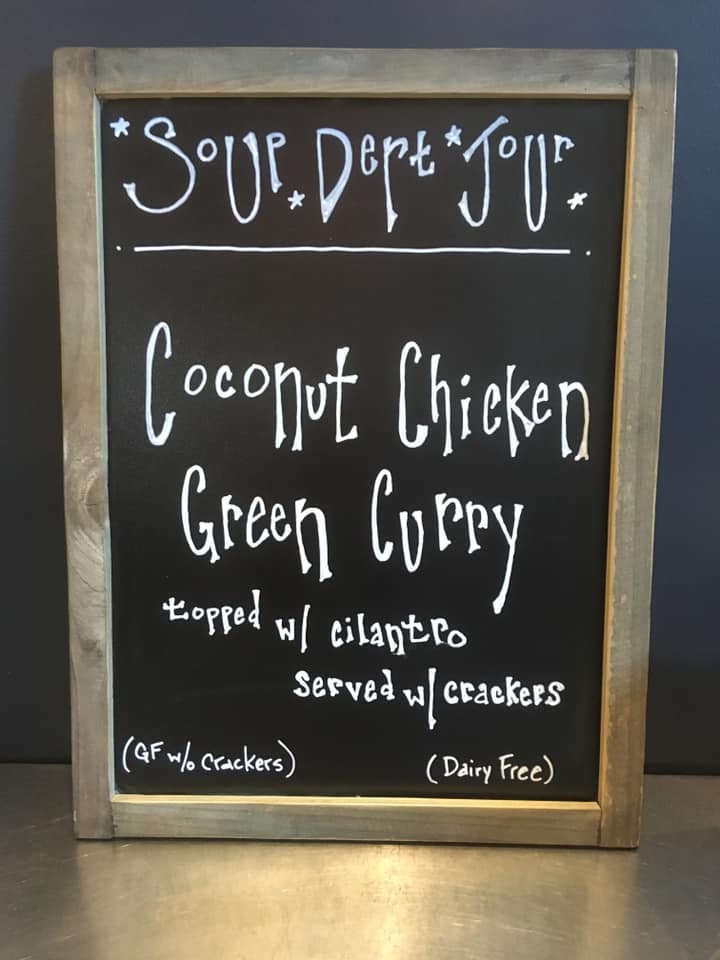 *Soup * Dept * Jour *
Coconut Chicken
Green Curry
topped w/ cilantro
served w/ crackers
(GF w/o Crackers) (Dairy Free)